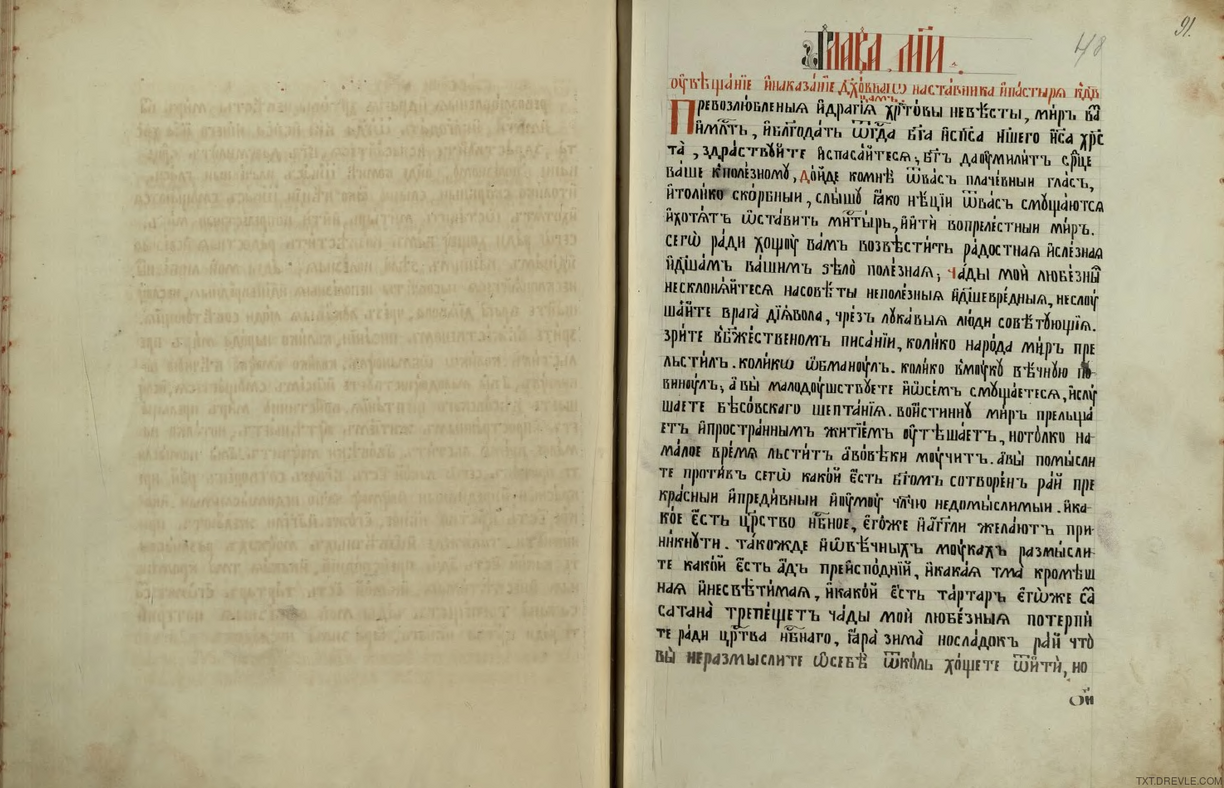 91.
48
Глава м҃и.
Оу҆вѣща́нїе и҆наказа́нїе дх҃о́внагѡ наста́вника и҆па́стырѧ къдв҃
камъ.
Превозлю́бленныѧ и҆драгі́ѧ хр҃то́вы невѣ́сты, ми́ръ ва́
и҆мл҃ть, и҆блгⷣода́ть ѿгд҃а бг҃а и҆сп҃са нш҃его і҆и҃са хрⷭ҇
та̀, здра́ствꙋйте и҆спаса́йтесѧ, бг҃ъ даоу҆мили́тъ срⷣце
ва́ше кполе́зномꙋ, до́йде комнѣ̀ ѿва́съ плаче́вныи гла́съ,
и҆толи́ко ско́рбныи, слы́шꙋ ꙗ҆́ко нѣ́цїи ѿва́съ смꙋща́ютсѧ
и҆хотѧ́тъ ѡ҆ста́вить мн҃ты́рь, и҆и҆тѝ вопреле́стныи ми́ръ.
сегѡ̀ ра́ди хощꙋ̀ ва́мъ возвѣсти́ть ра́достнаѧ и҆сле́знаѧ
и҆дш҃а́мъ ва́шимъ ѕѣлѡ̀ поле́знаѧ, ча́ды моѝ любе́зны̑
несклонѧ́йтесѧ насовѣ́ты неполе́зныѧ и҆дш҃евре́дныѧ, неслоу́
ша́йте врага̀ дїѧ́вола, чре́зъ лꙋка́выѧ лю́ди совѣ́тꙋющїѧ.
зри́те вбж҃е́ственомъ писа́нїи, коли́ко наро́да ми́ръ пре
льсти́лъ. коли́кѡ ѡ҆бманꙋ́лъ. коли́ко вмꙋ́кꙋ вѣ́чнꙋю по
винꙋ́лъ, а҆вы̀ малодꙋ́шствꙋете и҆ѡ҆все́мъ смꙋща́етесѧ, и҆слꙋ́
шаете бѣсо́вскаго шепта́нїѧ. вои́стиннꙋ ми́ръ прельща́
етъ и҆простра́ннымъ житїе́мъ оу҆тѣша́етъ, нотолко на
ма́лое вре́мѧ льсти́тъ а҆во́вѣки мꙋ́читъ. а҆вы̀ помы́сли
те проти́въ сегѡ̀ како́й є҆́сть бг҃омъ сотворе́нъ ра́й пре
кра́сныи и҆преди́вныи и҆оу҆мꙋ̀ чл҃чю недомы́слимыи. и҆ка
ко́е є҆́сть црⷭ҇тво нбⷭ҇ное, є҆го́же и҆а҆́гг҃ли жела́ютъ при
ни́кнꙋти. тако́жде и҆ѡ҆вѣ́чныхъ мꙋ́кахъ размы́сли
те како́й є҆́сть а҆́дъ преиспо́днїй, и҆кака́ѧ тма̀ кромѣ́ш
наѧ и҆несвѣти́маѧ, и҆како́й є҆́сть та́ртаръ є҆гѡ́же са́
сатана̀ трепе́щетъ ча́ды моѝ любе́зныѧ потерпи́
те ра́ди црⷭ҇тва нбⷭ҇наго, ꙗ҆ра̀ зима̀ носла́докъ ра́й что̀
вы̀ неразмыслите ѡ҆себѣ̀ ѿко́ль хо́щете ѿитѝ, но
ѻ҆й
TXT.DREVLE.COM